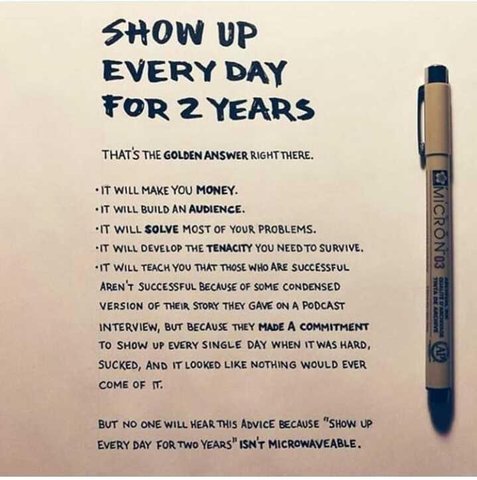 SHOW UP
EVERY DAY
FOR 2 YEARS
THAT'S THE GOLDEN ANSWER RIGHT THERE.
•IT WILL MAKE YOU MONEY.
•IT WILL BUILD AN AUDIENCE.
•IT WILL SOLVE MOST OF YOUR PROBLEMS.
•IT WILL DEVELOP THE TENACITY YOU NEED TO SURVIVE.
•IT WILL TEACH YOU THAT THOSE WHO ARE SUCCESSFUL
AREN'T SUCCESSFUL BECAUSE OF SOME CONDENSED
VERSION OF THEIR STORY THEY GAVE ON A PODCAST
INTERVIEW, BUT BECAUSE THEY MADE A COMMITMENT
TO SHOW UP EVERY SINGLE DAY WHEN IT WAS HARD,
SUCKED, AND IT LOOKED LIKE NOTHING WOULD EVER
COME OF IT.
BUT NO ONE WILL HEAR THIS ADVICE BECAUSE "SHOW UP
EVERY DAY FOR TWO YEARS" ISN'T MICROWAVEABLE.
MICRON 03